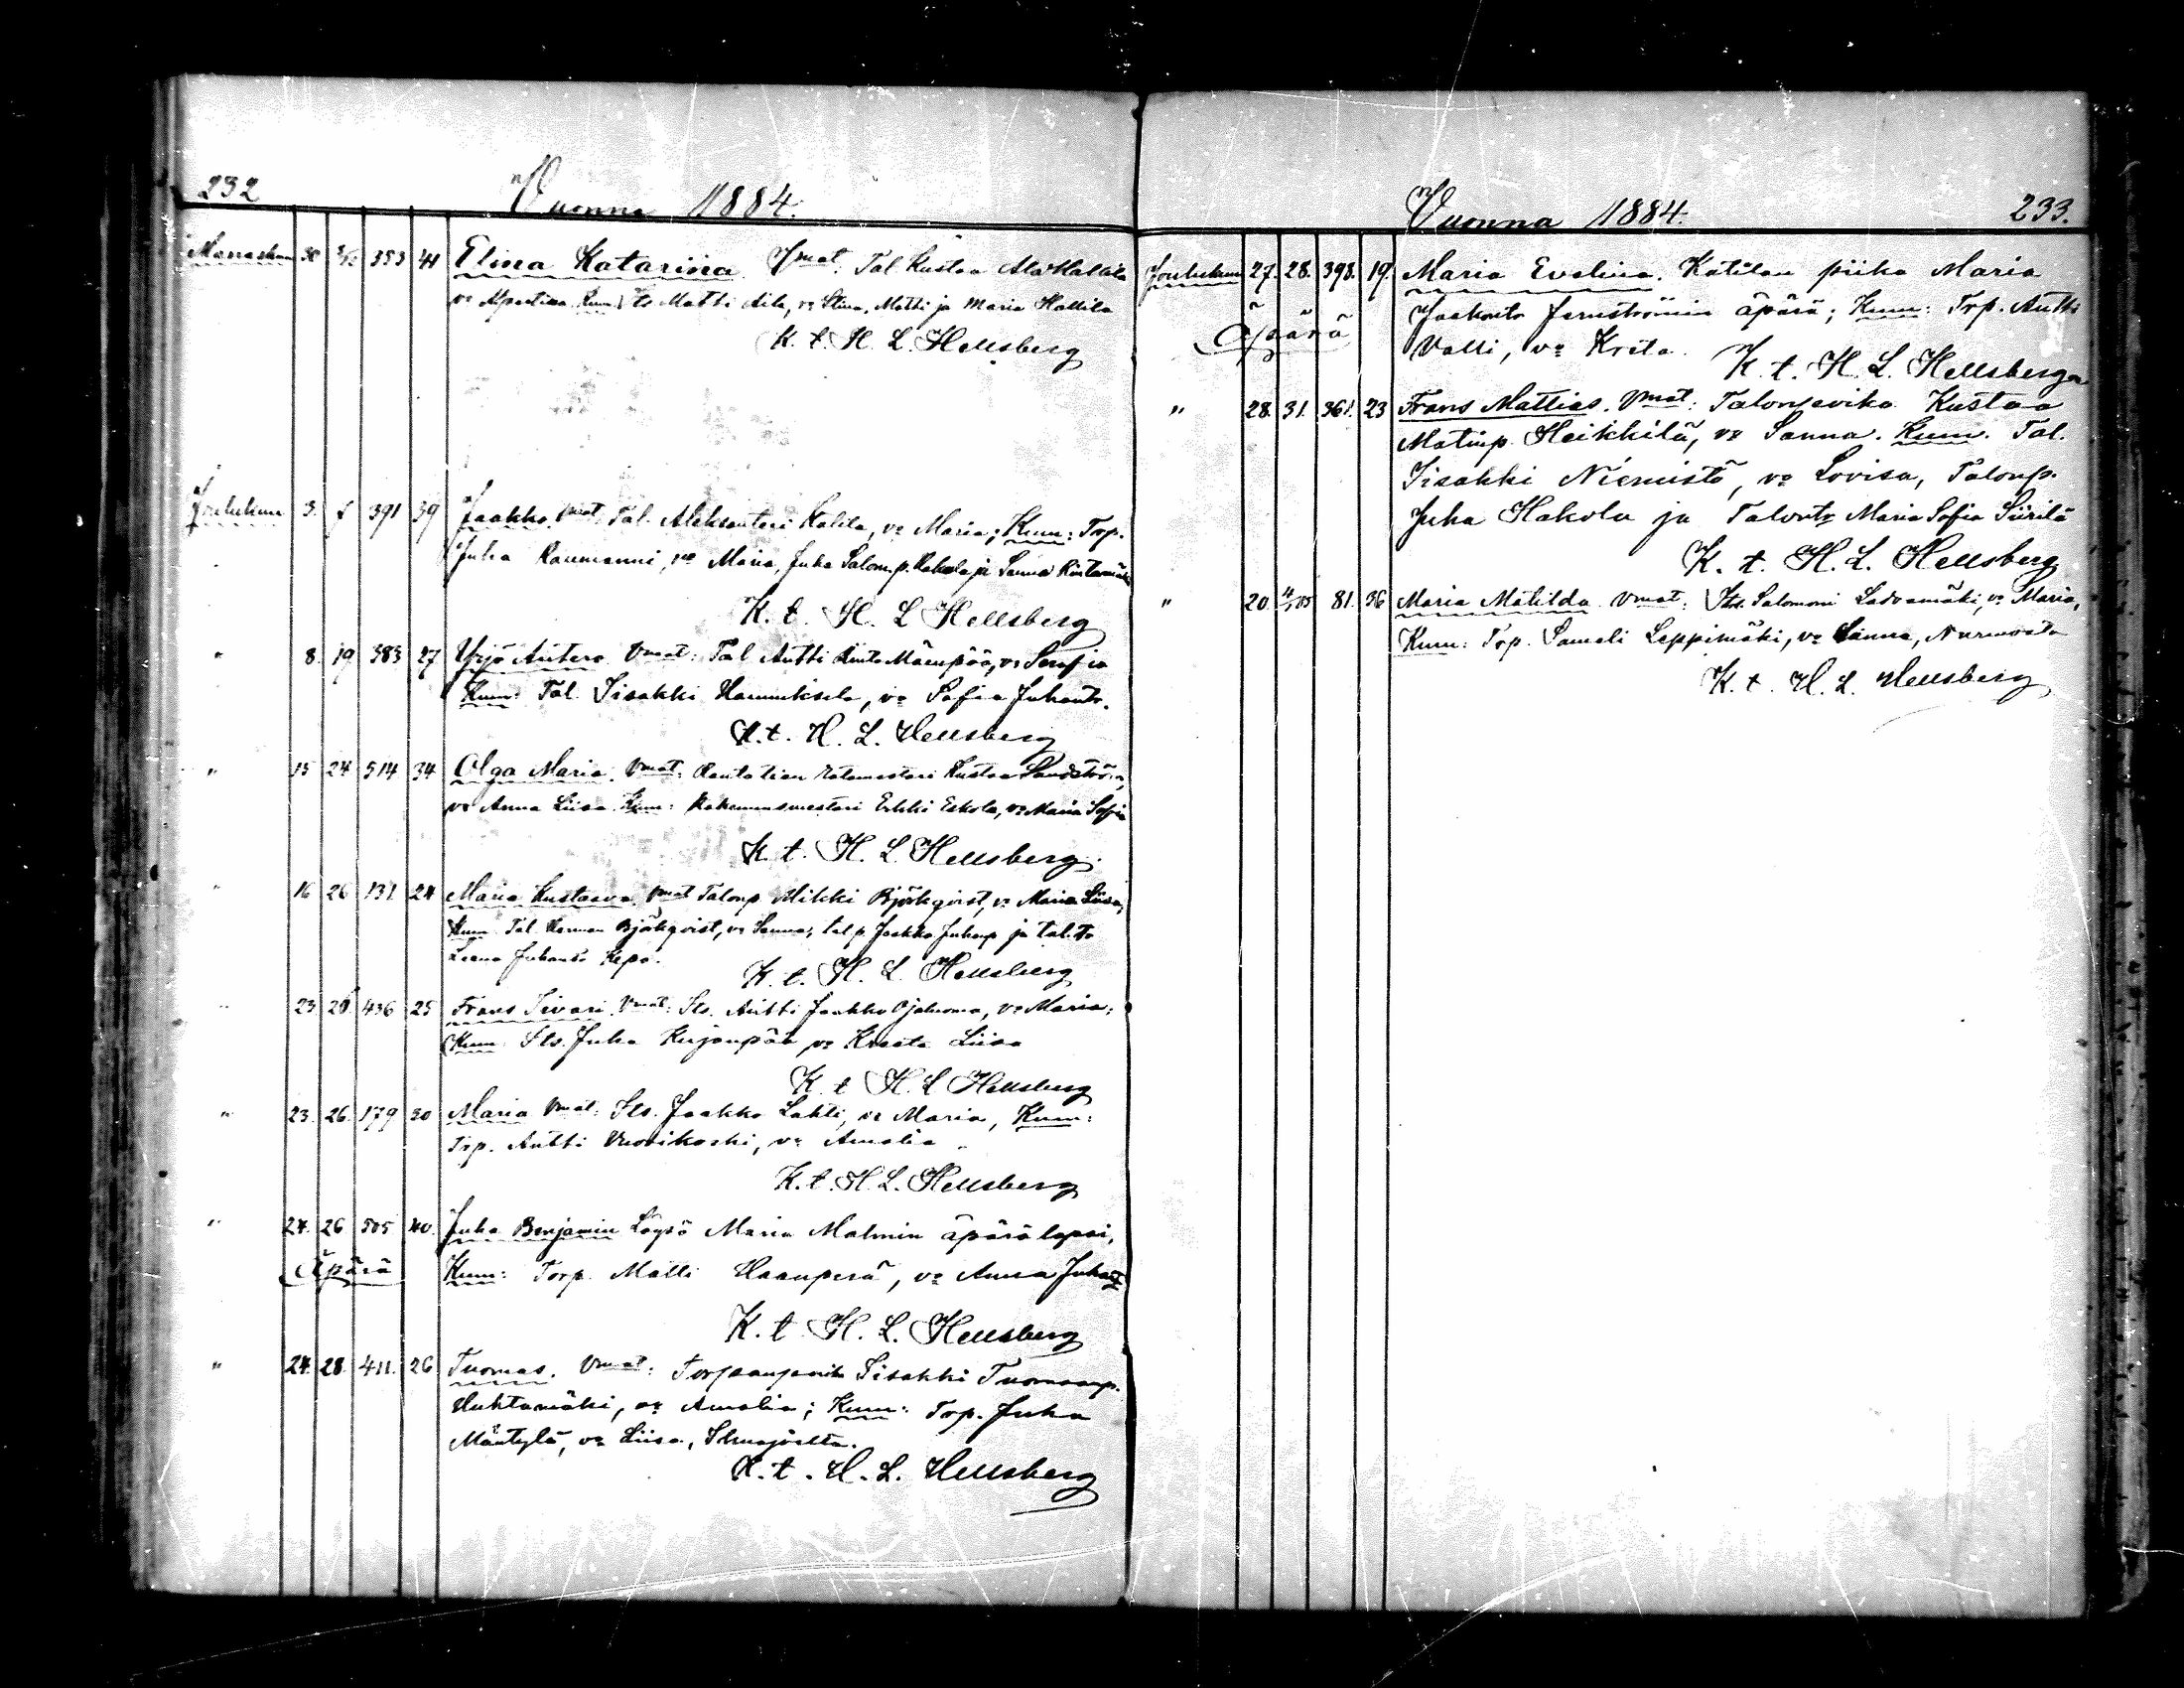 232
Vuonna 1884.
Marraskuu 30 3/12 353 41 Elina Katarina Vmat: Tal Kustaa Ala Hallila
va Kum: Matti Aila, va Stina, Matti ja Maria Hallila
K. t. H. L. Hellsberg
Joulukuu 3. 391 39 Jaakko Vmat: Tal. Aleksanteri Kalila, va Maria; Kum: Trp.
Juha Raumanni, va Maria, Juha Salom.p. Hakola ja Sanna Rintamäki
K. t. H. L Hellsberg
" 8. 19 383 27 Yrjö Antero Vmat: Tal Antti Rinta Mäenpää, va Serafia
Kum: Tal. Iisakki Hannuksela, va Sofia Juhantr.
K. t. H. L. Hellsberg
" 15 24 514 34 Olga Maria. Vmat: Rautatien ratamestari Kustaa Sandström,
va Anna Liisa Kum: Rakennusmestari Erkki Eskola, va Maria Sofia
K. t. H. L. Hellsberg.
" 16 26 131 24 Maria Kustaava. Vmat Talonp. Mikki Björkqvist, va Maria Liisa,
Kum Tal. Herman Björkqvist, va Sanna; tal.p. Jaakko Juhanp ja tal. tr
Leena Juhantr Kepo.
K. t. H. L. Hellsberg
" 23 28 436 25 Frans Iivari. Vmat: Its. Antti Jaakko Ojaluoma, va Maria;
Kum Its. Juha Kujanpää va Kreeta Liisa
K. t H. L Hellsberg
" 23. 26. 179 30 Maria Vmat: Its. Jaakko Lahti, va Maria, Kum:
Trp. Antti Vuorikoski, va Amalia
K. t. H. L. Hellsberg
" 24. 26 505 40. Juha Benjamin Löysä Maria Malmin äpärä lapsi,
Äpärä Kum: Torp. Matti Haanperä, va Anna Juhantr
K. t H. L. Hellsberg
" 24. 28. 411. 26 Tuomas. Vmat: Torpanpoika Iisakki Tuomaanp.
Huhtamäki, va Amalia; Kum: Trp. Juha
Mäntylä, va Liisa, Ilmajoelta.
K. t. H. L. Hellsberg
Vuonna 1884. 233.
Joulukuu 27. 28. 398. 19. Maria Evelina. Kätilän piika Maria
Äpärä Jaakontr Fernströmin äpärä; Kum: Trp. Antti
Valli, va Kreta. K. t. H. L. Hellsberg
" 28. 31. 361. 23 Frans Mattias. Vmat: Talonpoika Kustaa
Matinp. Heikkilä, va Sanna. Kum. Tal.
Iisakki Niemistö, va Lovisa, Talonp.
Juha Hakola ja Talontr Maria Sofia Siirilä
K. t. H. L. Hellsberg
" 20. 4/1 85 81. 36 Maria Matilda Vmat: Its. Salomoni Ladvamäki, va Maria,
Kum: Trp. Sameli Leppimäki, va Sanna, Nurmosta
K. t. H. L. Hellsberg